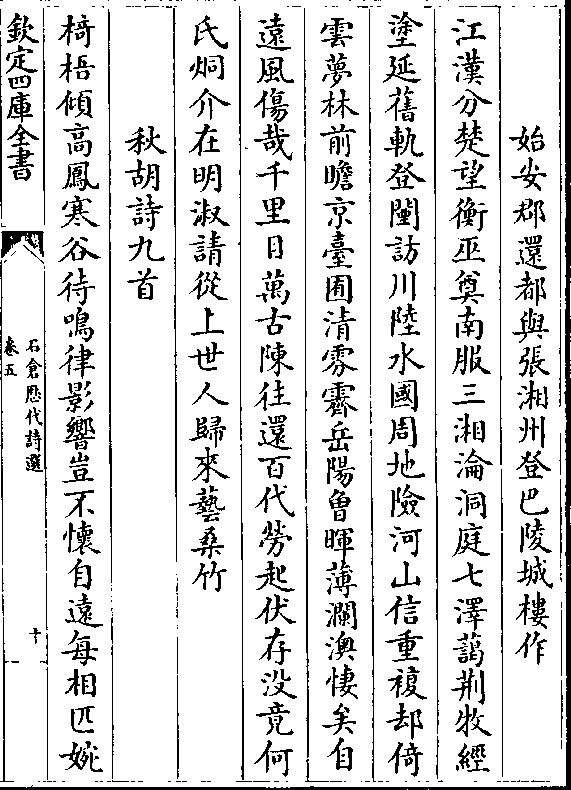 始安郡還都與張湘州登巴陵城樓作
江漢分楚望衡巫奠南服三湘淪洞庭七澤藹荆牧經
塗延舊軌登闉訪川陸水國周地險河山信重複却倚
雲夢林前瞻京臺囿清雰霽岳陽曽暉薄瀾澳悽矣自
遠風傷哉千里目萬古陳往還百代勞起伏存没竟何
氏烱介在明淑請從上世人歸來藝桑竹
秋胡詩九首
椅梧傾高鳳寒谷待鳴律影響豈不懷自遠每相匹婉
欽定四庫全書
石倉歴代詩選
卷五
十